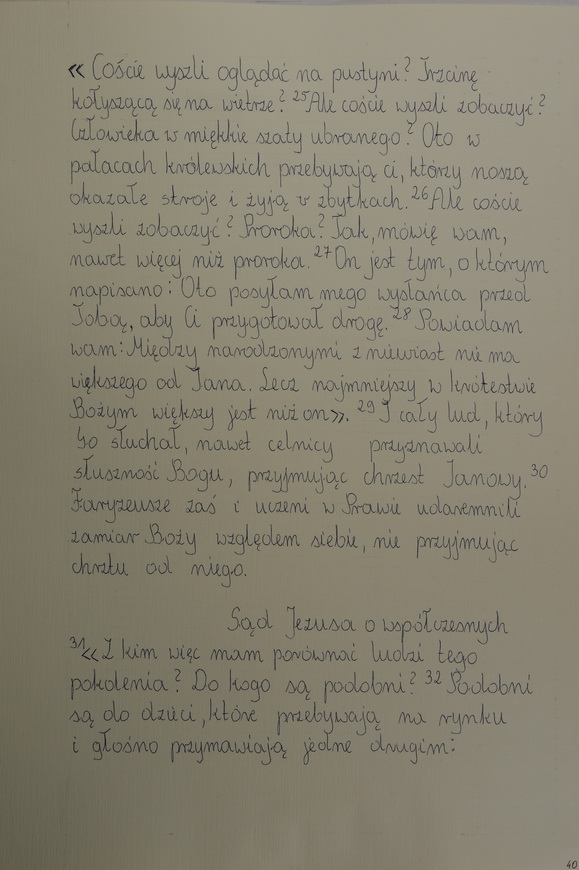 « Coście wyszli oglądać na pustyni? Trzcinę
kołyszącą się na wietrze? 25 Ale coście wyszli zobaczyć?
Człowieka w miękkie szaty ubranego? Oto w
pałacach królewskich przebywają ci, którzy noszą
okazałe stroje i żyją w zbytkach. 26 Ale coście
wyszli zobaczyć? Proroka? Tak, mówię wam,
nawet więcej niż proroka. 27 On jest tym, o którym
napisano: Oto posyłam mego wysłańca przed
Tobą, aby Ci przygotował drogę. 28 Powiadam
wam: Między narodzonymi z niewiast nie ma
większego od Jana. Lecz najmniejszy w królestwie
Bożym większy jest niż on». 29 I cały lud, który
Go słuchał, nawet celnicy przyznawali
słuszność Bogu, przyjmując chrzest Janowy. 30
Faryzeusze zaś i uczeni w Prawie udaremnili
zamiar Boży względem siebie, nie przyjmując
chrztu od niego.
Sąd Jezusa o współczesnych
31 « Z kim więc mam porównać ludzi tego
pokolenia? Do kogo są podobni? 32 Podobni
są do dzieci, które przebywają na rynku
i głośno przymawiają jedne drugim:
40